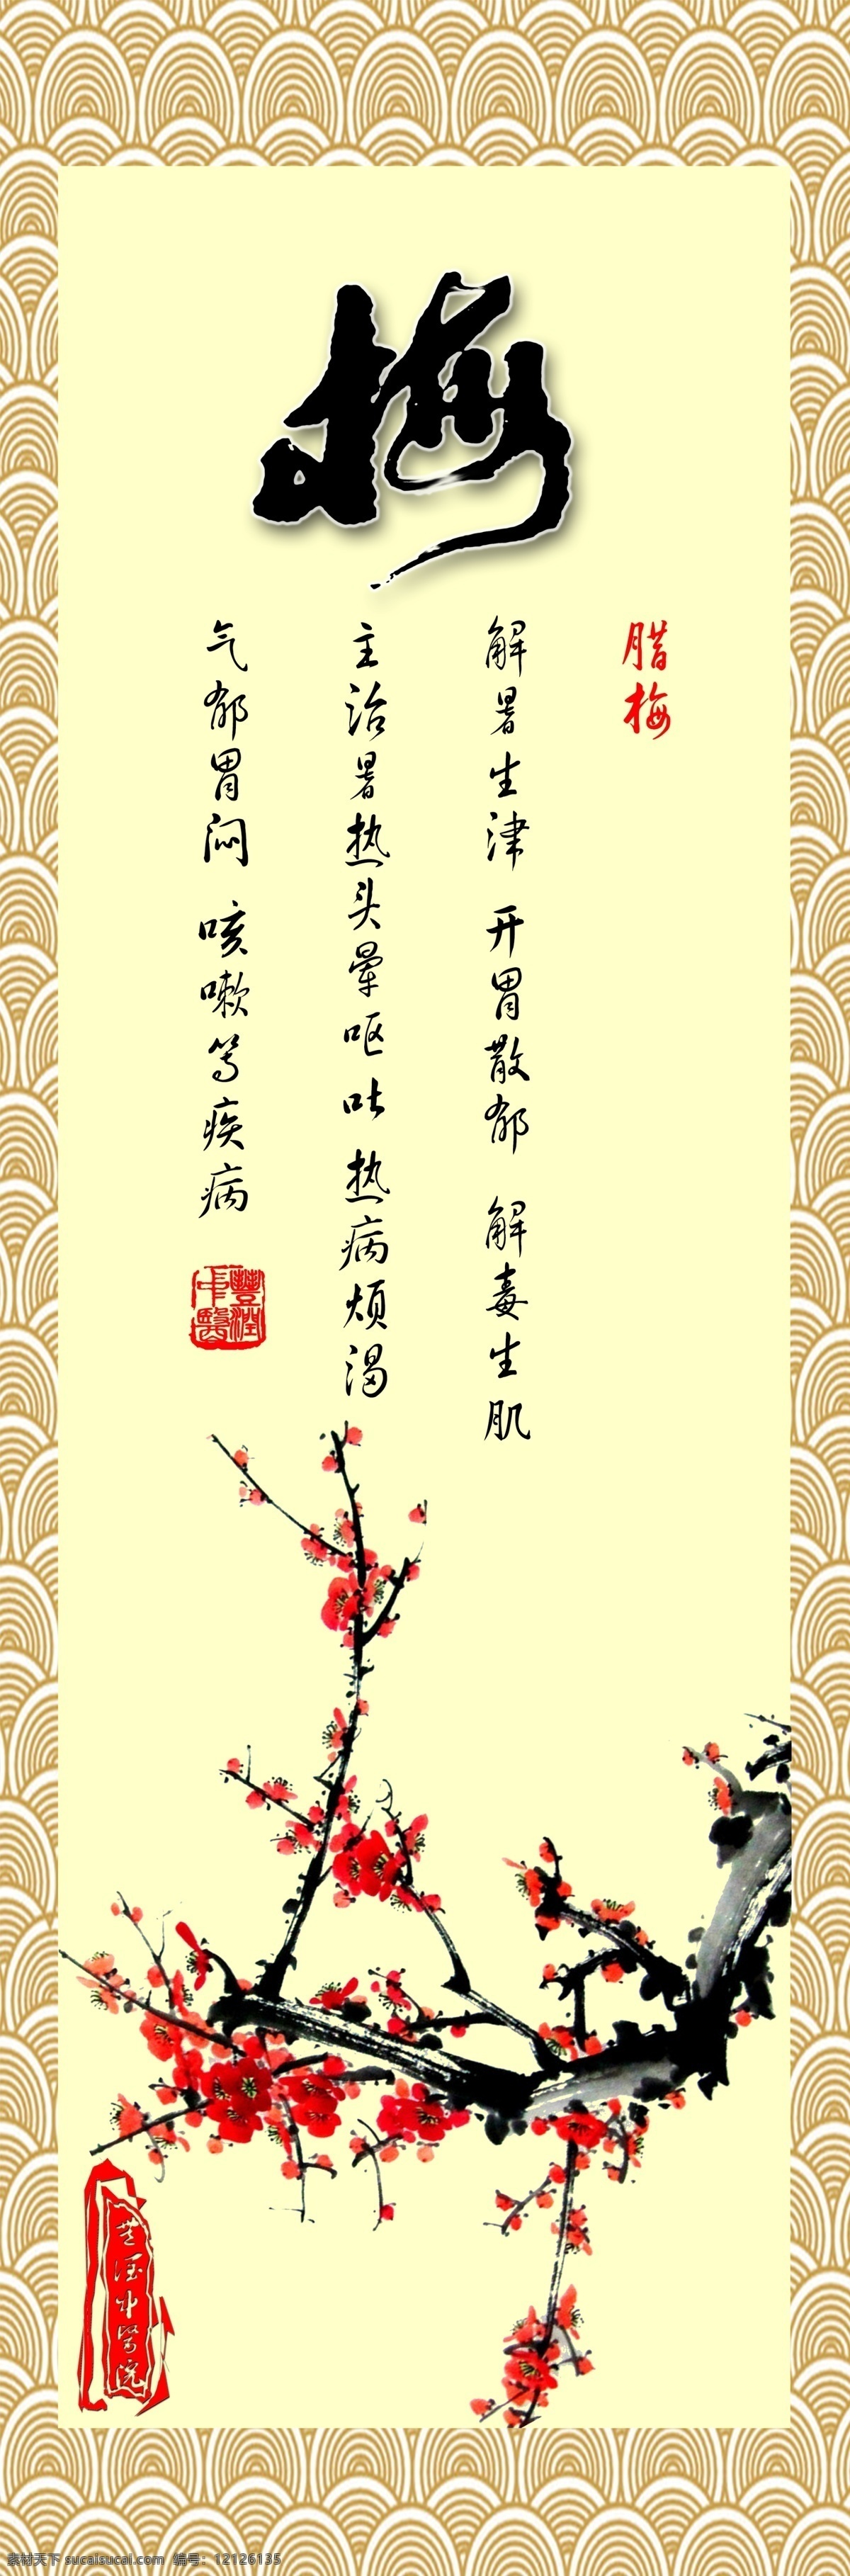 梅
腊梅
解暑生津 开胃散郁 解毒生肌
主治暑热头晕呕吐 热病烦渴
气郁胃闷 咳嗽等疾病
豐潤
中醫
豐润中医院
素材天下 sucaisucai.com 编号：12126135